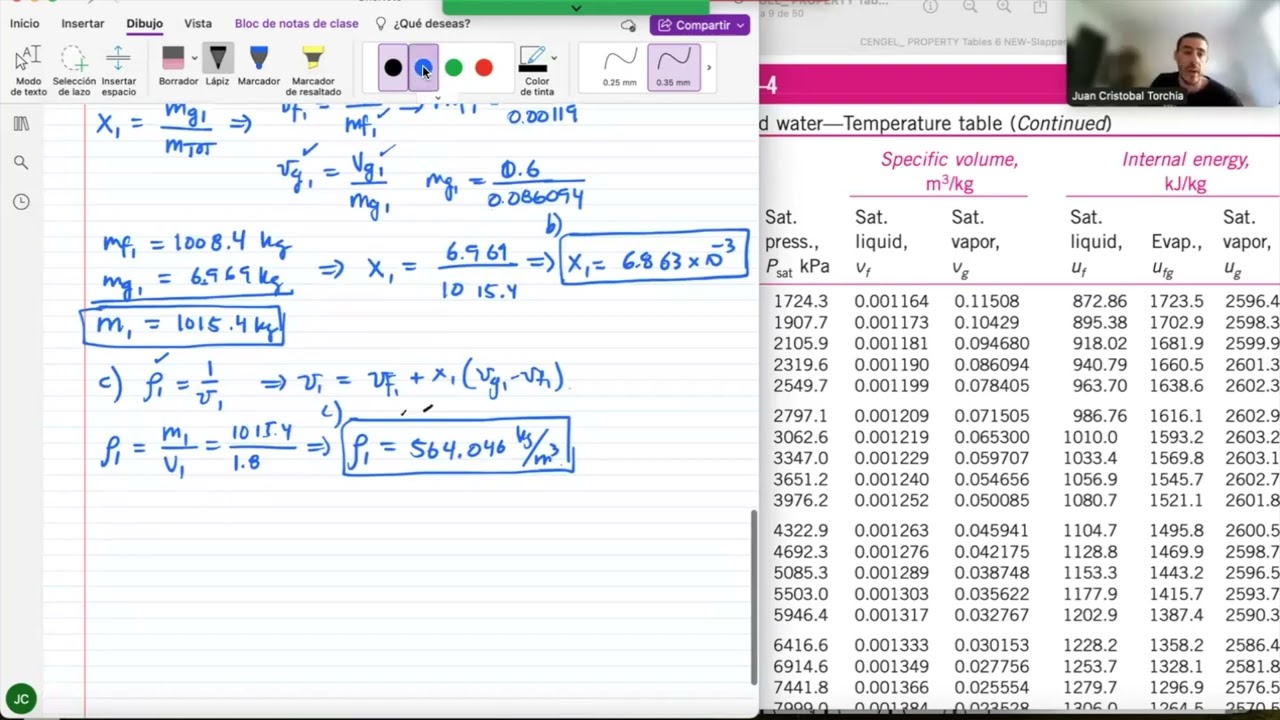 Inicio Insertar Dibujo Vista Bloc de notas de clase ¿Qué deseas? Compartir
Modo de texto
Selección de lazo
Insertar espacio
Borrador
Lápiz
Marcador
Marcador de resaltado
Color de tinta
0.25 mm
0.35 mm
a 9 de 50
CENGEL_ PROPERTY Tables 6 NEW-Slapper
Juan Cristobal Torchia
X₁ = mg₁ / mTOT ⇒
0.00119
vg₁ = Vg₁ / mg₁ mg₁ = 0.6 / 0.086094
mf₁ = 1008.4 kg
mg₁ = 6.969 kg ⇒ X₁ = 6.969 / 1015.4 ⇒ b) X₁ = 6.863 × 10⁻³
m₁ = 1015.4 kg
c) ρ₁ = 1 / v₁ ⇒ v₁ = vf₁ + x₁ (vg₁ - vf₁)
ρ₁ = m₁ / V₁ = 1015.4 / 1.8 ⇒ c) ρ₁ = 564.046 kg/m³
JC
–4
d water—Temperature table (Continued)
Specific volume, m³/kg
Internal energy, kJ/kg
Sat. press., Psat kPa
Sat. liquid, vf
Sat. vapor, vg
Sat. liquid, uf
Evap., ufg
Sat. vapor, ug
1724.3 0.001164 0.11508 872.86 1723.5 2596.4
1907.7 0.001173 0.10429 895.38 1702.9 2598.3
2105.9 0.001181 0.094680 918.02 1681.9 2599.9
2319.6 0.001190 0.086094 940.79 1660.5 2601.3
2549.7 0.001199 0.078405 963.70 1638.6 2602.3
2797.1 0.001209 0.071505 986.76 1616.1 2602.9
3062.6 0.001219 0.065300 1010.0 1593.2 2603.2
3347.0 0.001229 0.059707 1033.4 1569.8 2603.1
3651.2 0.001240 0.054656 1056.9 1545.7 2602.7
3976.2 0.001252 0.050085 1080.7 1521.1 2601.8
4322.9 0.001263 0.045941 1104.7 1495.8 2600.5
4692.3 0.001276 0.042175 1128.8 1469.9 2598.7
5085.3 0.001289 0.038748 1153.3 1443.2 2596.5
5503.0 0.001303 0.035622 1177.9 1415.7 2593.7
5946.4 0.001317 0.032767 1202.9 1387.4 2590.3
6416.6 0.001333 0.030153 1228.2 1358.2 2586.4
6914.6 0.001349 0.027756 1253.7 1328.1 2581.8
7441.8 0.001366 0.025554 1279.7 1296.9 2576.5
7999.0 0.001384 0.023528 1306.0 1264.5 2570.5